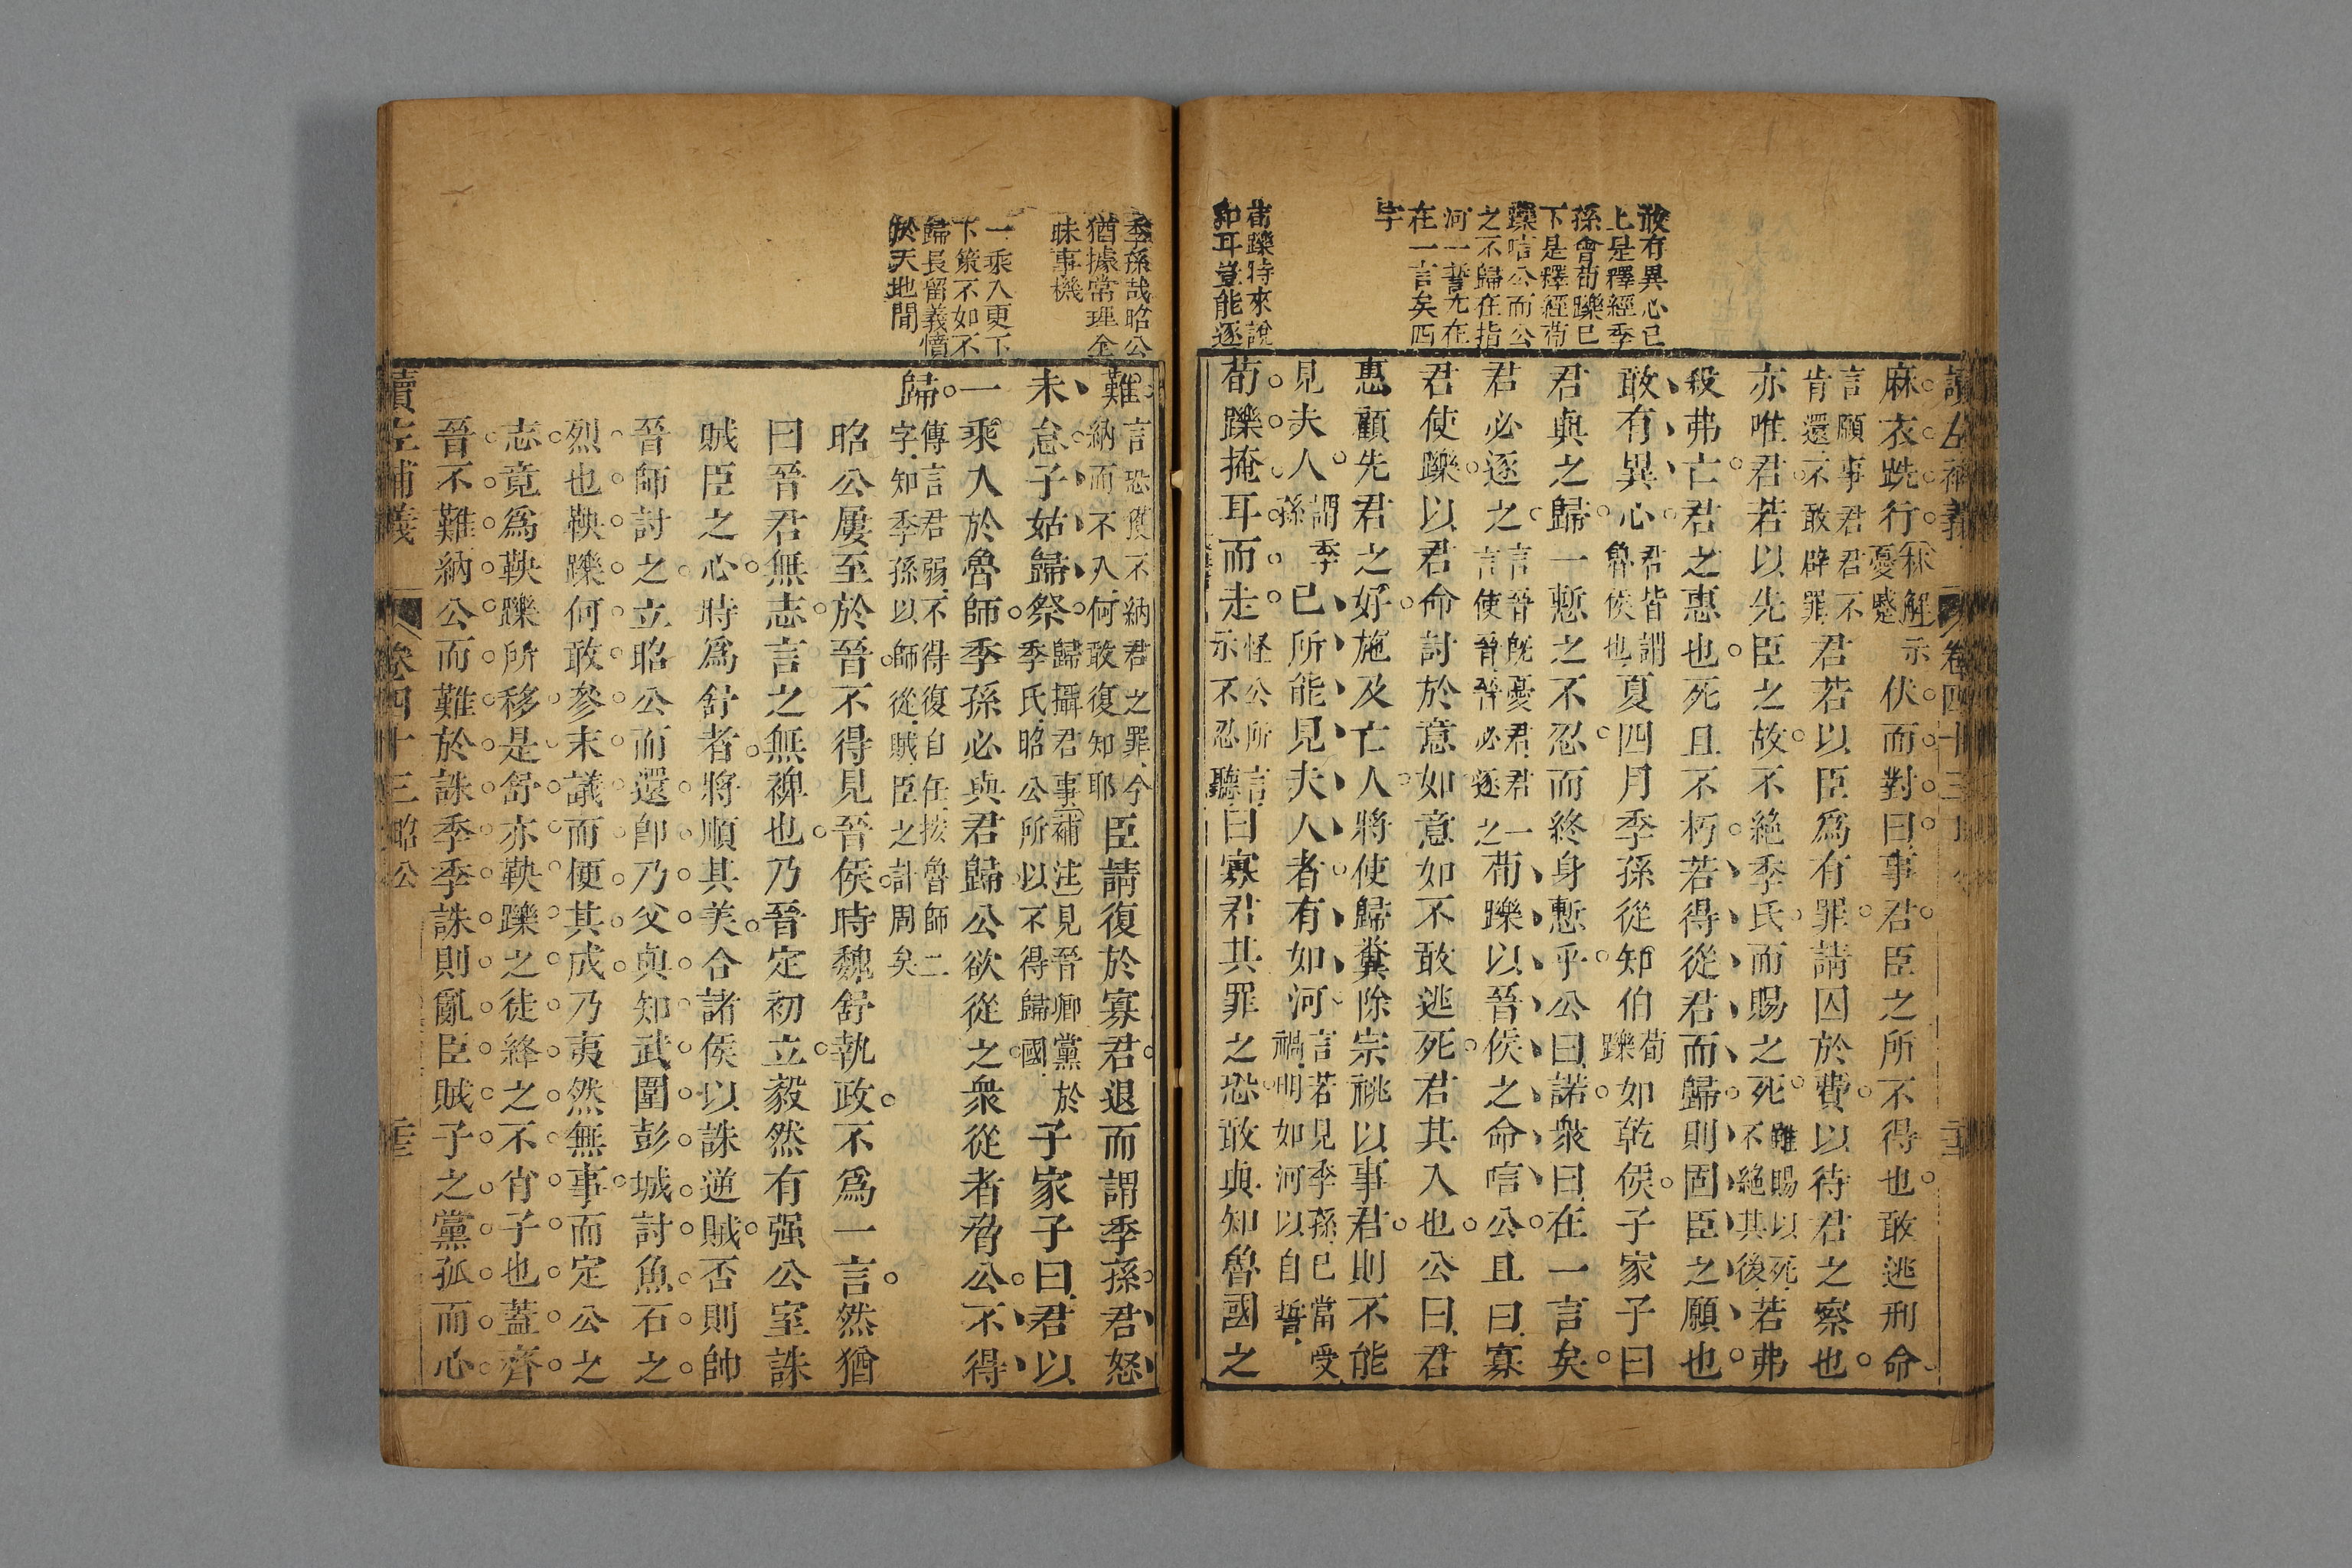 敢有異心已
上是釋經季
孫會荀躒已
下是釋經荀
躒唁公而公
之不歸在指
河一誓尤在
在一言矣四
字
荀躒特來說
和耳豈能逐
麻衣跣行示憂慼
伏而對曰事君臣之所不得也敢逃刑命
言願事君君不肯還不敢辟罪君若以臣爲有罪請囚於費以待君之察也
亦唯君若以先臣之故不絶季氏而賜之死雖賜以死不絶其後若弗
殺弗亡君之惠也死且不朽若得從君而歸則固臣之願也
敢有異心君皆謂魯侯也夏四月季孫從知伯荀躒如乾侯子家子曰
君與之歸一慙之不忍而終身慙乎公曰諾衆曰在一言矣
君必逐之言晉旣憂君君一言使晉晉必逐之荀躒以晉侯之命唁公且曰寡
君使躒以君命討於意如意如不敢逃死君其入也公曰君
惠顧先君之好施及亡人將使歸糞除宗祧以事君則不能
見夫人謂季孫已所能見夫人者有如河言若見季孫已當受禍明如河以自誓
荀躒掩耳而走怪公所言示不忍聽曰寡君其罪之恐敢與知魯國之
讀左補義 卷四十三 昭公
季孫哉昭公
猶據常理全
昧事機
一乘入更下
下策不如不
歸長留義憤
於天地間
難言恐獲不納君之罪今納而不入何敢復知耶臣請復於寡君退而謂季孫君怒
未怠子姑歸祭歸攝君事補注見晉卿黨於季氏昭公所以不得歸國子家子曰君以
一乘入於魯師季孫必與君歸公欲從之衆從者脅公不得
歸傳言君弱不得復自任按魯師二字知季孫以師從賊臣之計周矣
昭公屢至於晉不得見晉侯時魏舒執政不爲一言然猶
曰晉君無志言之無裨也乃晉定初立毅然有强公室誅
賊臣之心時爲舒者將順其美合諸侯以誅逆賊否則帥
晉師討之立昭公而還卽乃父與知武圍彭城討魚石之
烈也鞅躒何敢參末議而便其成乃夷然無事而定公之
志竟爲鞅躒所移是舒亦鞅躒之徒絳之不肖子也蓋齊
晉不難納公而難於誅季季誅則亂臣賊子之黨孤而心
讀左補義 卷四十三 昭公